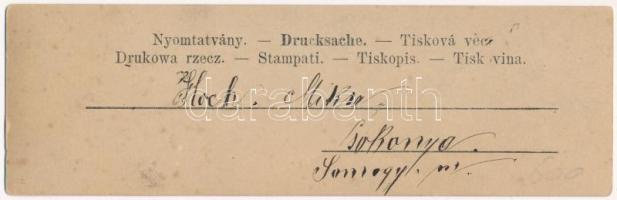 Nyomtatvány. — Drucksache. — Tisková věc.
Drukowa rzecz. — Stampati. — Tiskopis. — Tiskovina.
Miksa
Somogy. m.
darabanth